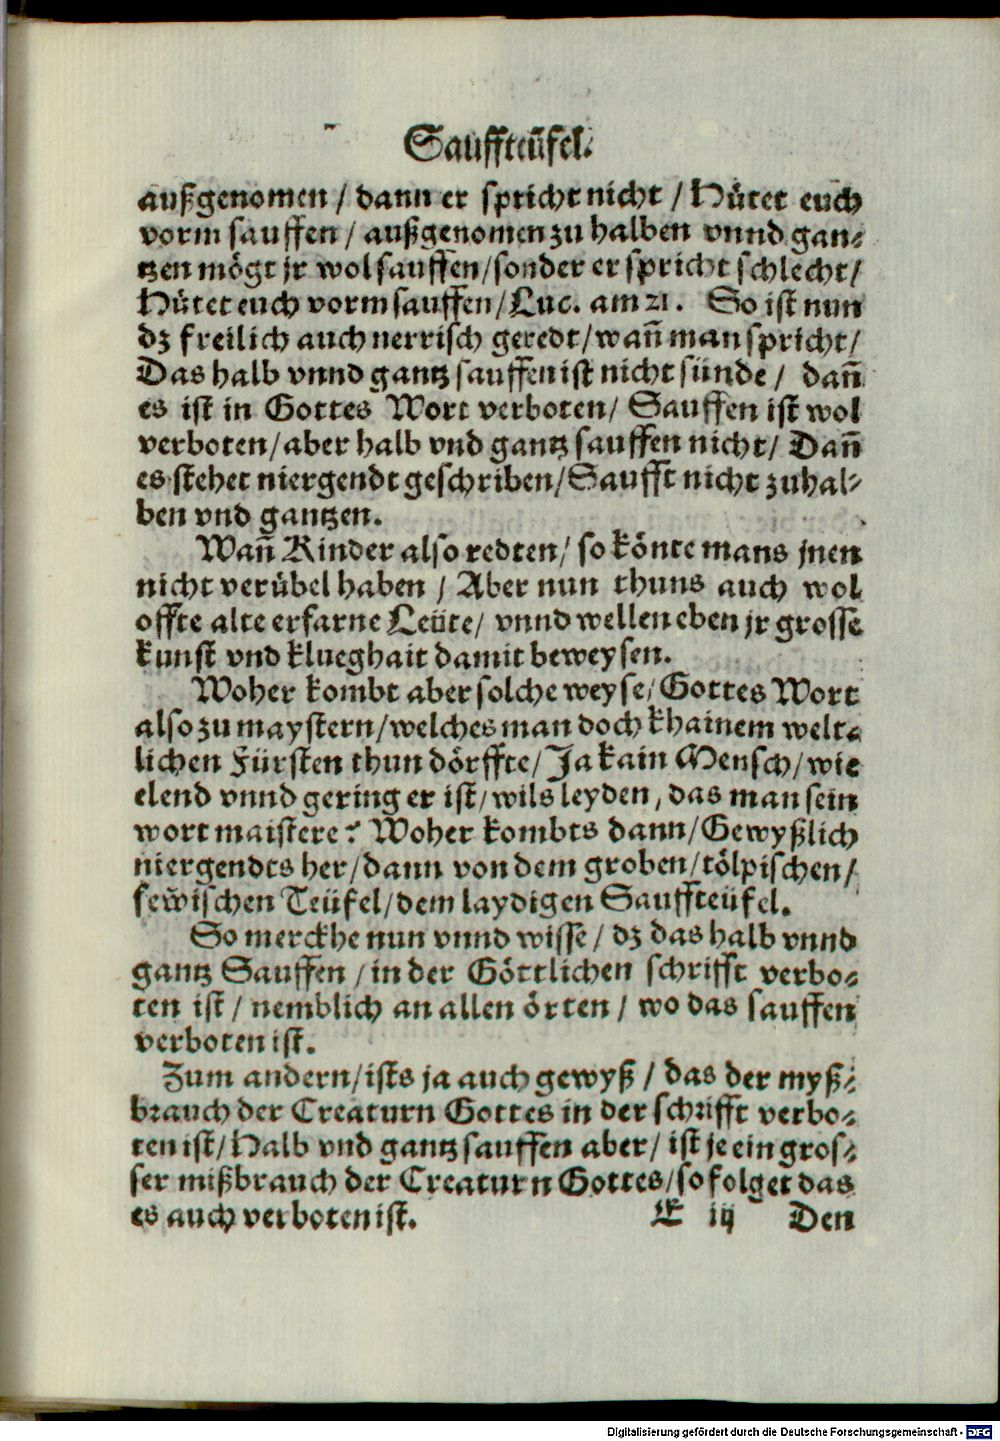 Sauffteüfel.
außgenomen / dann er spricht nicht / Hütet euch
vorm sauffen / außgenomen zu halben vnnd gan-
tzen mögt jr wol sauffen / sonder er spricht schlecht /
Hütet euch vorm sauffen / Luc. am 21. So ist nun
dz freilich auch nerrisch geredt / wañ man spricht /
Das halb vnnd gantz sauffen ist nicht sünde / dañ
es ist in Gottes Wort verboten / Sauffen ist wol
verboten / aber halb vnd gantz sauffen nicht / Dañ
es stehet niergendt geschriben / Saufft nicht zu hal-
ben vnd gantzen.
Wañ Kinder also redten / so könte mans jnen
nicht verübel haben / Aber nun thuns auch wol
offte alte erfarne Leüte / vnnd wellen eben jr grosse
kunst vnd klueghait damit beweysen.
Woher kombt aber solche weyse / Gottes Wort
also zu maystern / welches man doch khainem welt-
lichen Fürsten thun dörffte / Ja kain Mensch / wie
elend vnnd gering er ist / wils leyden, das man sein
wort maistere? Woher kombts dann / Gewyßlich
niergendts her / dann von dem groben / tölpischen /
sew̃ischen Teüfel / dem laydigen Sauffteüfel.
So merckhe nun vnnd wisse / dz das halb vnnd
gantz Sauffen / in der Göttlichen schrifft verbo-
ten ist / nemblich an allen örten / wo das sauffen
verboten ist.
Zum andern / ists ja auch gewyß / das der myß-
brauch der Creaturn Gottes in der schrifft verbo-
ten ist / Halb vnd gantz sauffen aber / ist je ein gros-
ser mißbrauch der Creaturn Gottes / so folget das
es auch verboten ist. E iij Den
Digitalisierung gefördert durch die Deutsche Forschungsgemeinschaft - DFG